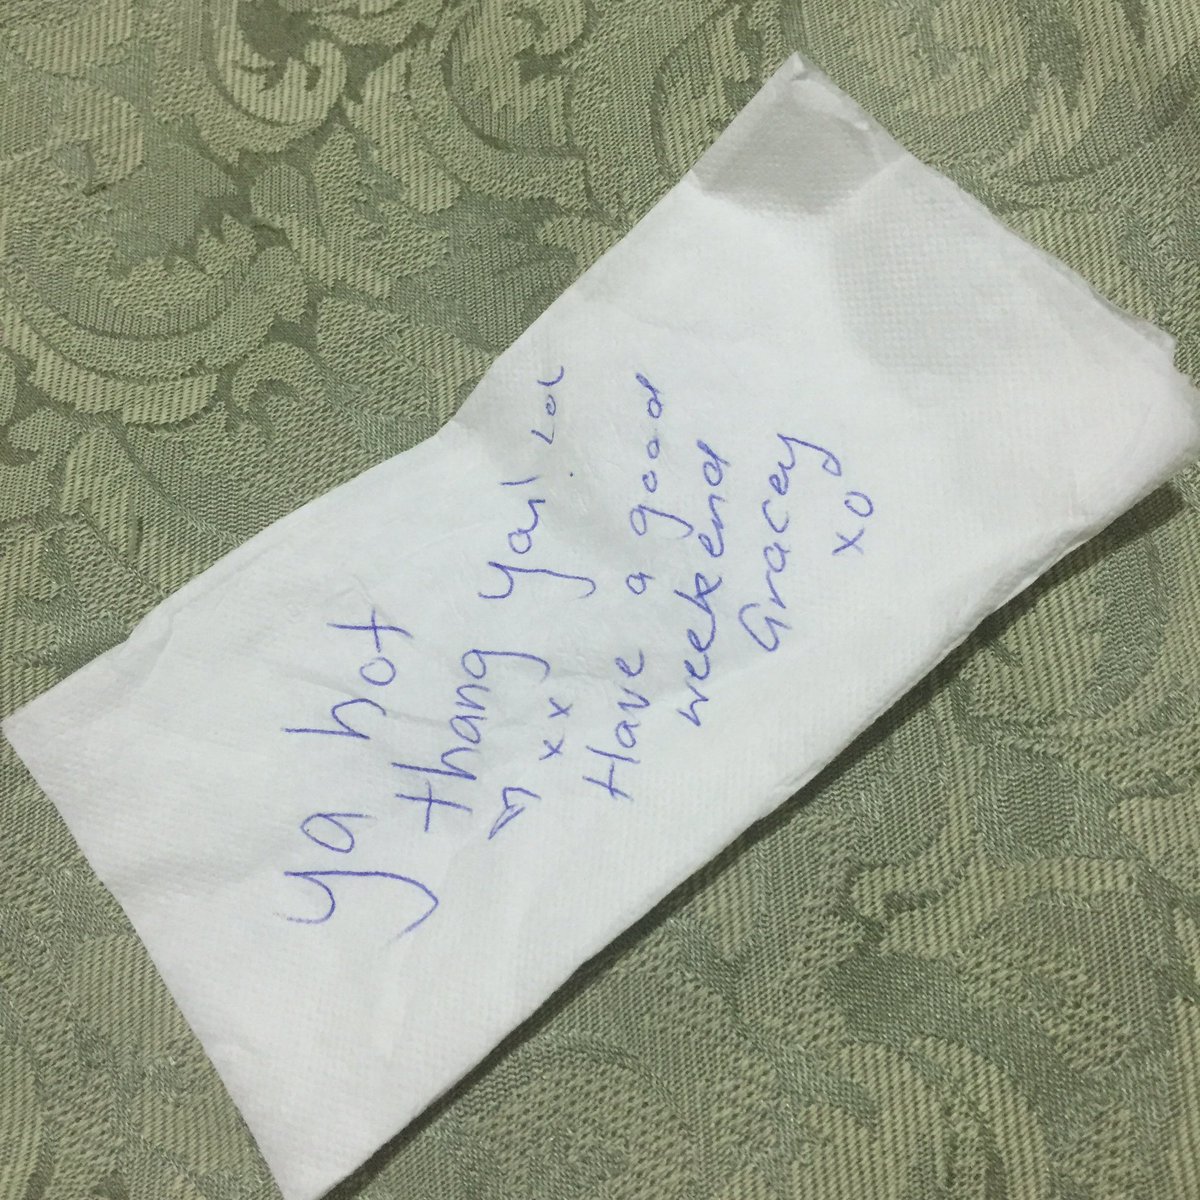 ya hot
thang yay! Lol
♡ xx
Have a good
weekend
Gracey
xo